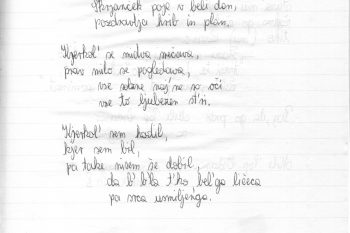 Škrjanček poje v beli dan,
pozdravlja hrib in plan.
Kjerkol' se midva srečava,
prav milo se pogledava,
vse solzne naj'ne so oči
vse to ljubezen st'ri.
Kjerkol' sem hodil,
kjer sem bil,
pa take nisem še dobil,
da b' b'la t'ko bel'ga ličeca
pa srca usmiljen'ga.